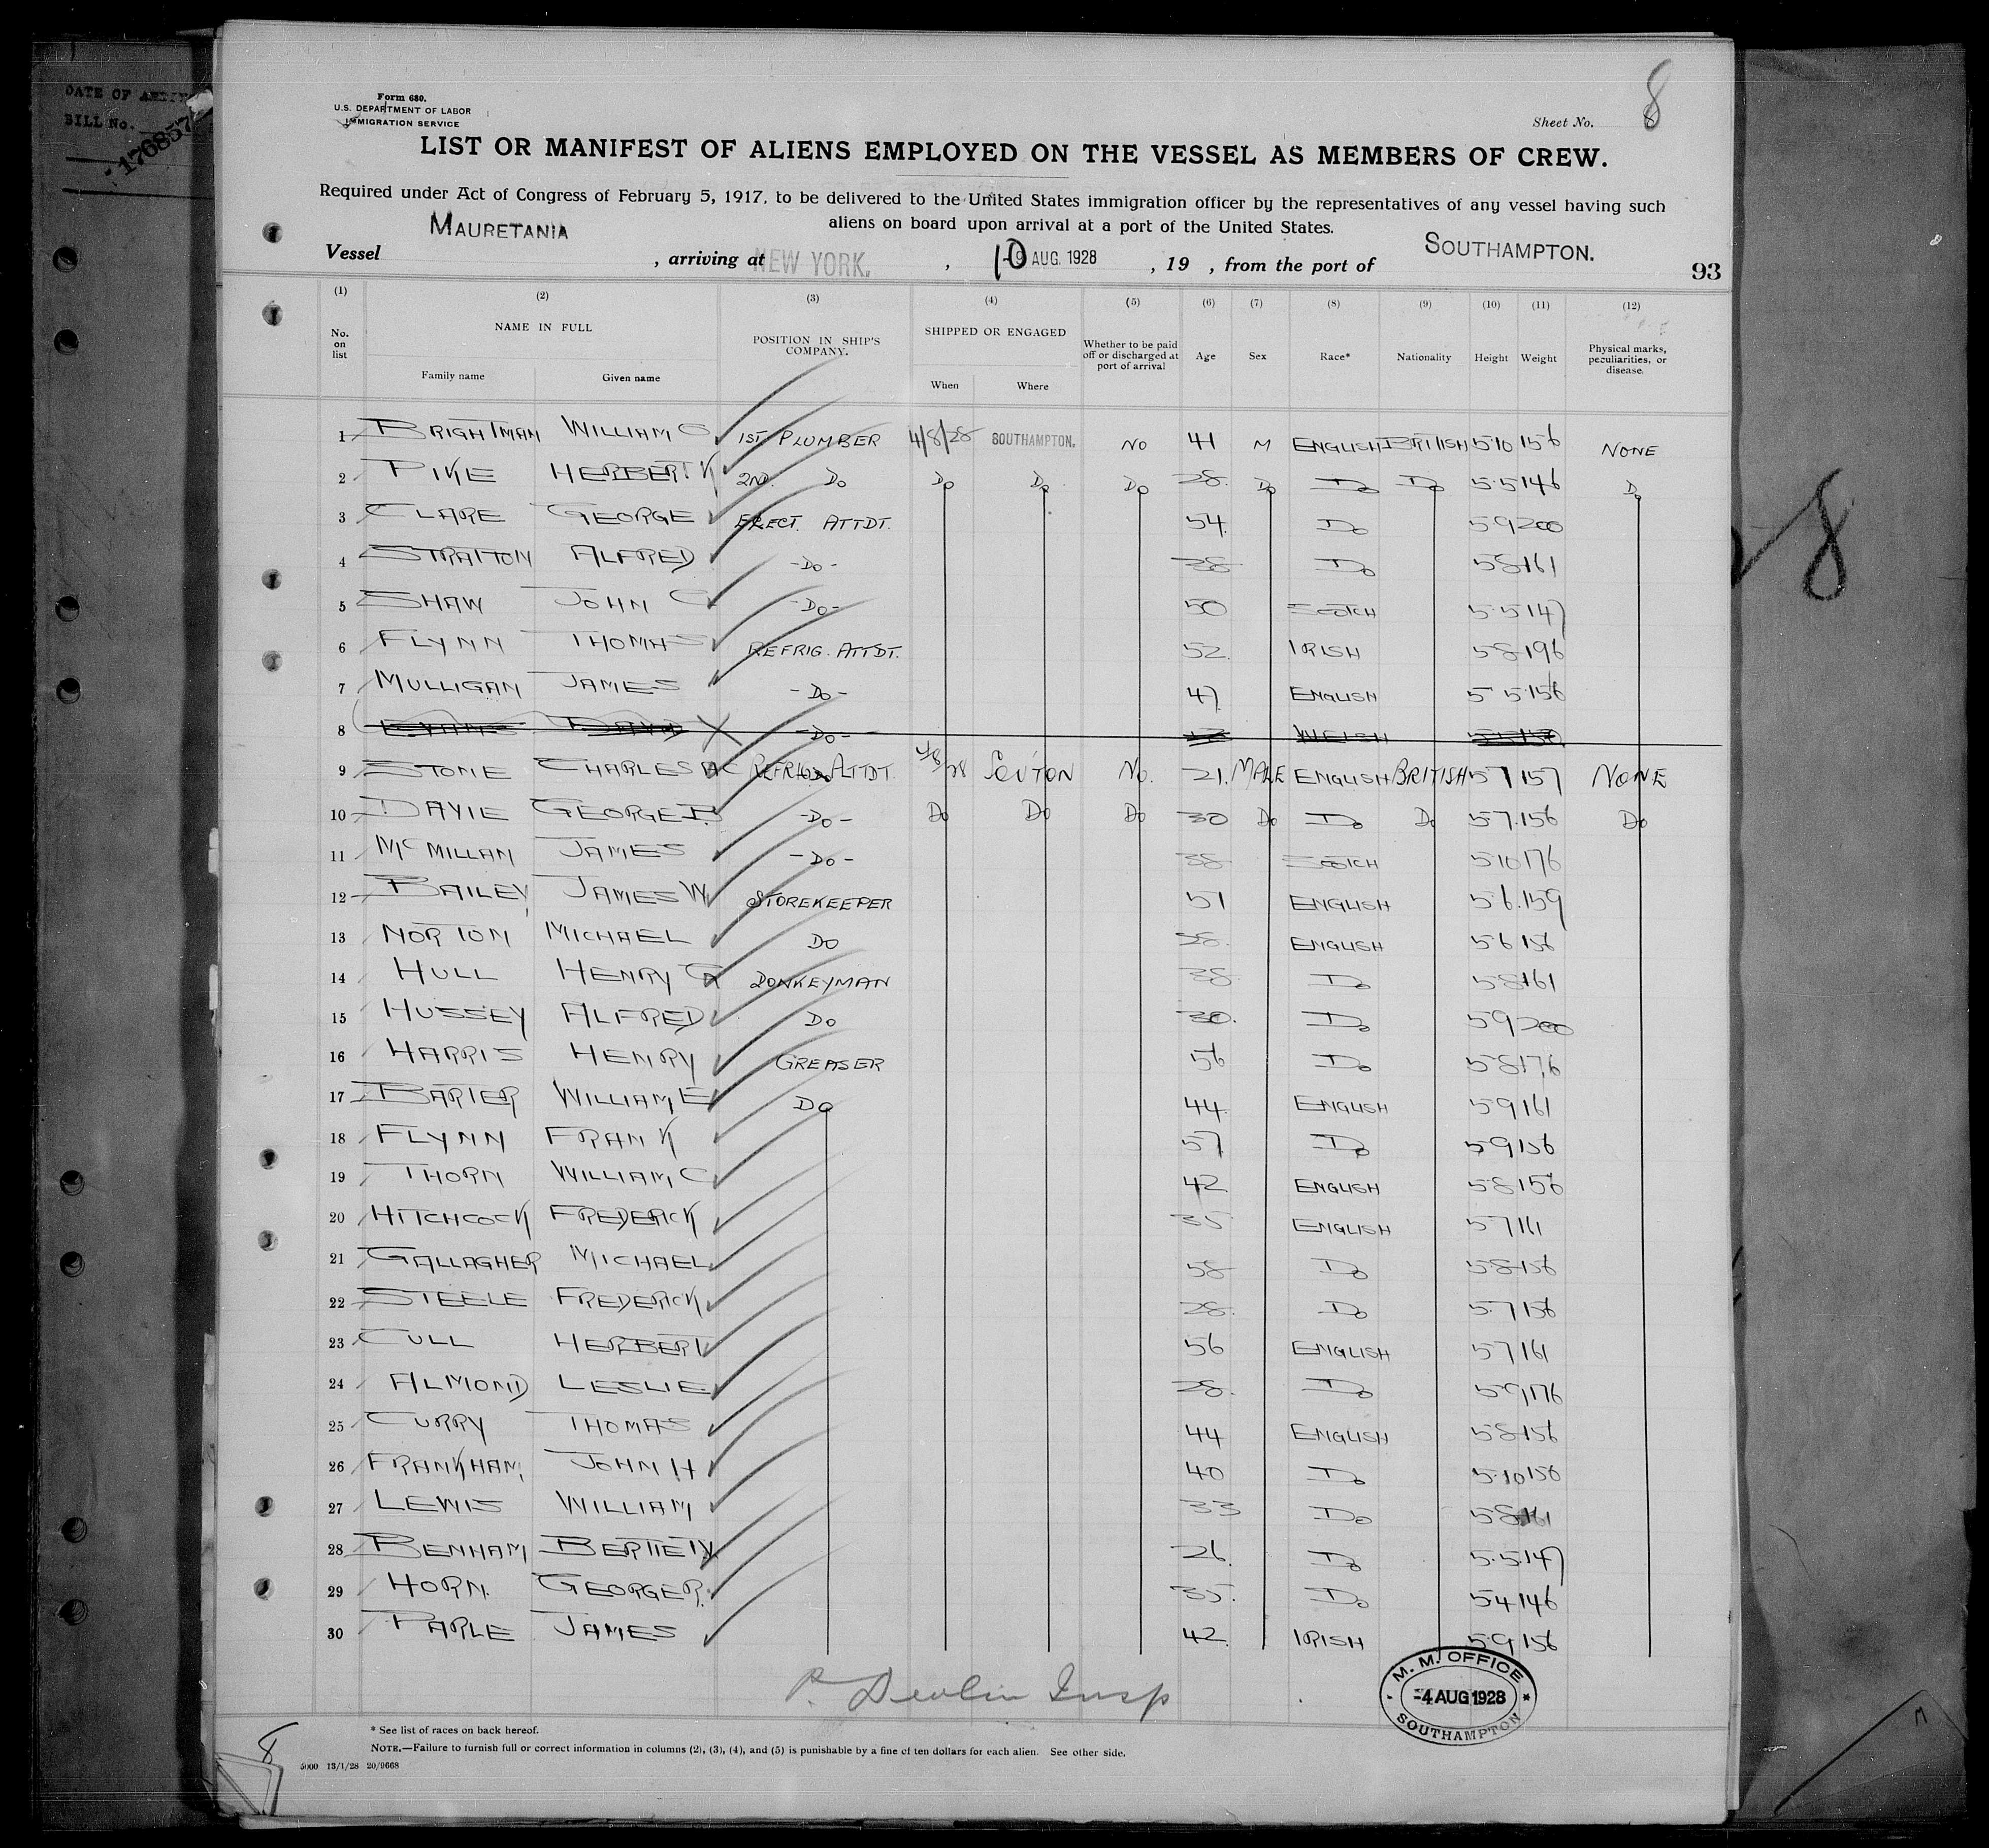 DATE OF
BILL No.
170857
8
Form 680.
U.S. DEPARTMENT OF LABOR
IMMIGRATION SERVICE
Sheet No. 8
LIST OR MANIFEST OF ALIENS EMPLOYED ON THE VESSEL AS MEMBERS OF CREW.
Required under Act of Congress of February 5, 1917, to be delivered to the United States immigration officer by the representatives of any vessel having such
aliens on board upon arrival at a port of the United States.
Vessel MAURETANIA , arriving at NEW YORK. , 10 AUG. 1928 , 19 , from the port of SOUTHAMPTON.
93
(1) (2) (3) (4) (5) (6) (7) (8) (9) (10) (11) (12)
No. on list NAME IN FULL POSITION IN SHIP'S COMPANY. SHIPPED OR ENGAGED Whether to be paid off or discharged at port of arrival Age Sex Race* Nationality Height Weight Physical marks, peculiarities, or disease.
Family name Given name When Where
1 BRIGHTMAN WILLIAM G 1ST PLUMBER 4/8/28 SOUTHAMPTON. NO 41 M ENGLISH BRITISH 5 10 156 NONE
2 PIKE HERBERT K 2ND. DO DO DO DO 28 DO DO DO 5 5 146 DO
3 CLARE GEORGE ELECT. ATTDT. 54 DO 5 9 200
4 STRATTON ALFRED -DO- 38 DO 5 8 161
5 SHAW JOHN C -DO- 50 SCOTCH 5 5 147
6 FLYNN THOMAS REFRIG. ATTDT. 52 IRISH 5 8 196
7 MULLIGAN JAMES -DO- 47 ENGLISH 5 5 156
8 EVANS DAVID -DO- WELSH
9 STONE CHARLES REFRIG. ATTDT. 4/8/28 SO'TON NO. 21 MALE ENGLISH BRITISH 5 7 157 NONE
10 DAVIE GEORGE -DO- DO DO DO 30 DO DO DO 5 7 156 DO
11 MCMILLAN JAMES -DO- 38 SCOTCH 5 10 176
12 BAILEY JAMES W STOREKEEPER 51 ENGLISH 5 6 159
13 NORTON MICHAEL DO 38 ENGLISH 5 6 156
14 HULL HENRY G DONKEYMAN 38 DO 5 8 161
15 HUSSEY ALFRED DO 30 DO 5 9 200
16 HARRIS HENRY GREASER 56 DO 5 8 176
17 WILLIAM E DO 44 ENGLISH 5 9 161
18 FLYNN FRANK 57 DO 5 9 156
19 THORN WILLIAM C 42 ENGLISH 5 8 156
20 HITCHCOCK FREDERICK 35 ENGLISH 5 7 161
21 GALLAGHER MICHAEL 58 DO 5 8 156
22 STEELE FREDERICK 28 DO 5 7 156
23 CULL HERBERT 56 ENGLISH 5 7 161
24 ALMOND LESLIE 28 DO 5 9 176
25 CURRY THOMAS 44 ENGLISH 5 8 156
26 FRANKHAM JOHN H 40 DO 5 10 156
27 LEWIS WILLIAM 33 DO 5 8 161
28 BENHAM BERTIE 26 DO 5 5 147
29 HORN. GEORGE R. 35 DO 5 4 146
30 PARLE JAMES 42 IRISH 5 9 156
P. Devlin Insp
M. M. OFFICE
-4 AUG 1928
SOUTHAMPTON
* See list of races on back hereof.
NOTE.—Failure to furnish full or correct information in columns (2), (3), (4), and (5) is punishable by a fine of ten dollars for each alien. See other side.
5000 13/1/28 20/9668
8